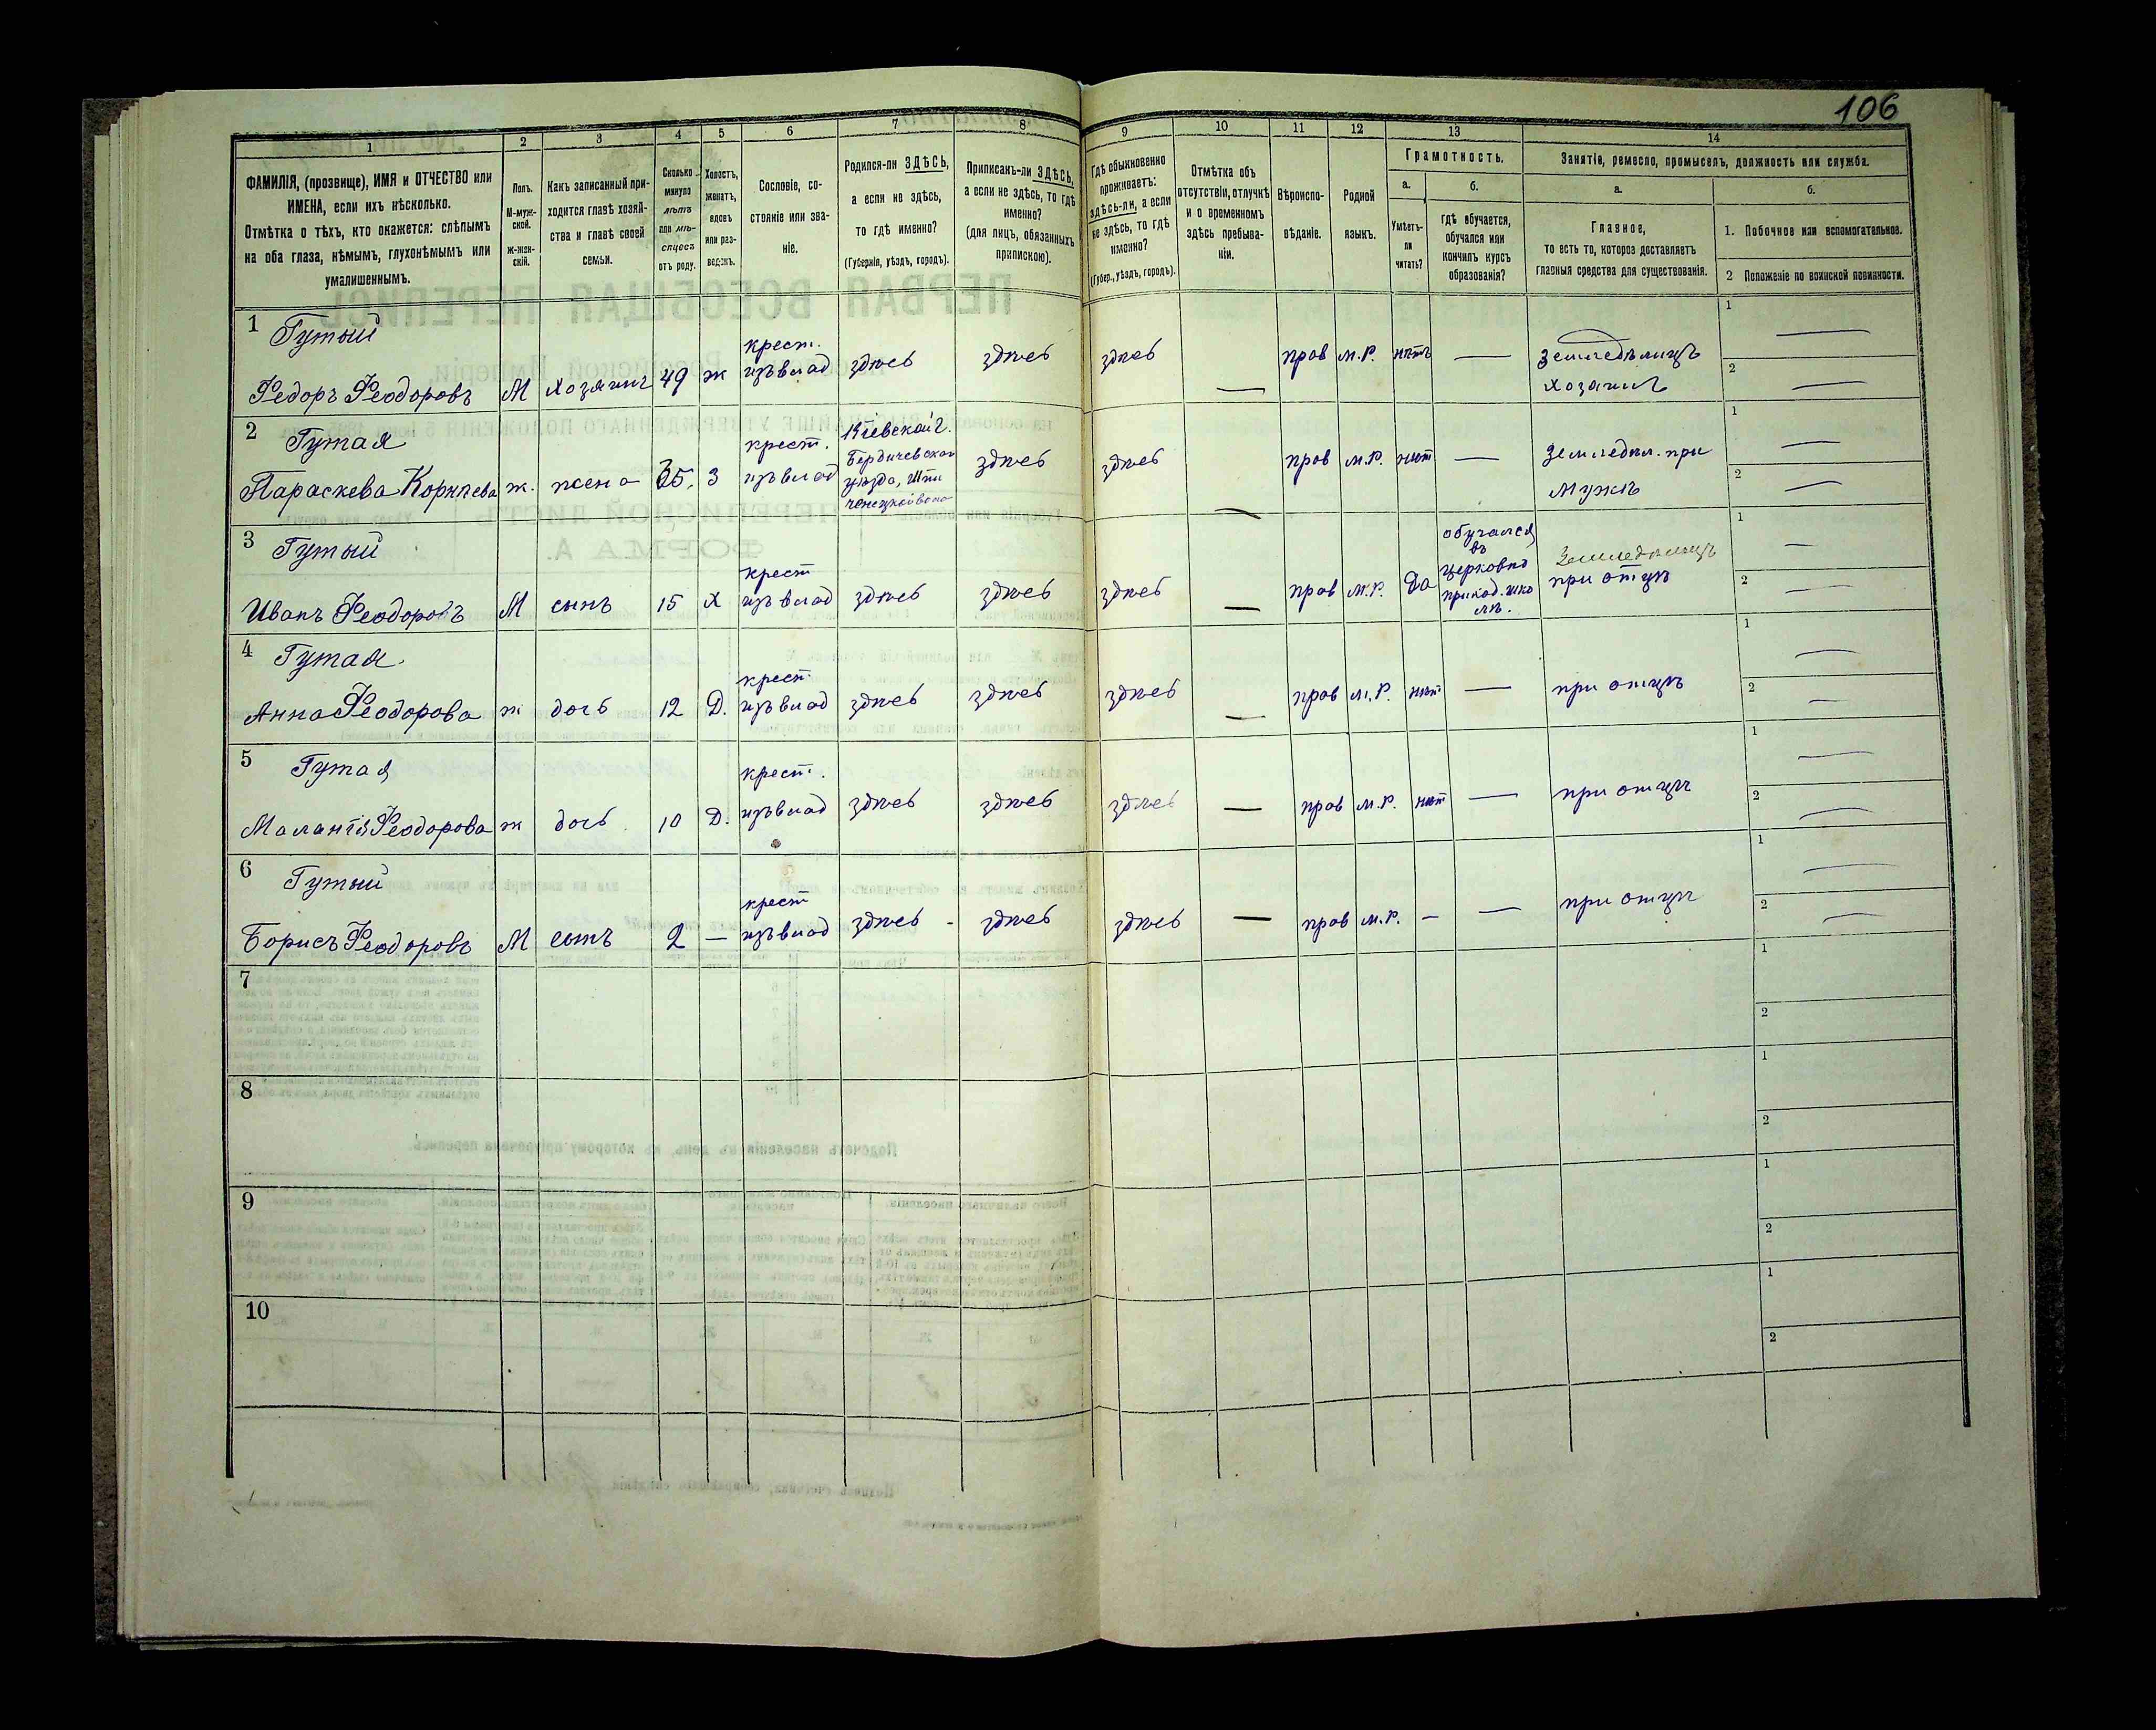 106
1 2 3 4 5 6 7 8 9 10 11 12 13 14
ФАМИЛІЯ, (прозвище), ИМЯ и ОТЧЕСТВО или
ИМЕНА, если ихъ нѣсколько.
Отмѣтка о тѣхъ, кто окажется: слѣпымъ
на оба глаза, нѣмымъ, глухонѣмымъ или
умалишеннымъ.
Полъ.
М-муж-
ской.
Ж-жен-
скій.
Какъ записанный при-
ходится главѣ хозяй-
ства и главѣ своей
семьи.
Сколько
минуло
лѣтъ
или мѣ-
сяцевъ
отъ роду.
Холостъ,
женатъ,
вдовъ
или раз-
веденъ.
Сословіе, со-
стояніе или зва-
ніе.
Родился-ли ЗДѢСЬ,
а если не здѣсь,
то гдѣ именно?
(Губернія, уѣздъ, городъ).
Приписанъ-ли ЗДѢСЬ,
а если не здѣсь, то гдѣ
именно?
(для лицъ, обязанныхъ
припискою).
Гдѣ обыкновенно
проживаетъ:
здѣсь-ли, а если
не здѣсь, то гдѣ
именно?
(Губер., уѣздъ, городъ).
Отмѣтка объ
отсутствіи, отлучкѣ
и о временномъ
здѣсь пребыва-
ніи.
Вѣроиспо-
вѣданіе.
Родной
языкъ.
Грамотность.
а.
Умѣетъ-
ли
читать?
б.
гдѣ обучается,
обучался или
кончилъ курсъ
образованія?
Занятіе, ремесло, промыселъ, должность или служба.
а.
Главное,
то есть то, которое доставляетъ
главныя средства для существованія.
б.
1. Побочное или вспомогательное.
2 Положеніе по воинской повинности.
1 Гутый
Федоръ Феодоровъ М хозяинъ 49 ж крест. изъ влад здѣсь здѣсь здѣсь — прав м.р. нѣтъ — земледѣлецъ хозяинъ 1 — 2 —
2 Гутая
Параскева Корнѣева ж. жена 35. З крест. изъ влад Кіевской г. Бердичевскаго уѣзда, здѣсь здѣсь — прав м.р. нѣт — земледѣл. при мужѣ 1 — 2 —
3 Гутый
Иванъ Феодоровъ М сынъ 15 Х крест изъ влад здѣсь здѣсь здѣсь — прав м.р. Да обучался въ церковно приход. шко лѣ. Земледѣлецъ при отцѣ 1 — 2 —
4 Гутая.
Анна Феодорова ж дочь 12 Д. крест. изъ влад здѣсь здѣсь здѣсь — прав м.р. нѣт — при отцѣ 1 — 2 —
5 Гутая
Маланія Феодорова ж дочь 10 Д. крест. изъ влад здѣсь здѣсь здѣсь — прав м.р. нѣт — при отцѣ 1 — 2 —
6 Гутый
Борисъ Феодоровъ М сынъ 2 — крест изъ влад здѣсь - здѣсь здѣсь — прав м.р. — — при отцѣ 1 — 2 —
7 1 2
8 1 2
9 1 2
10 1 2